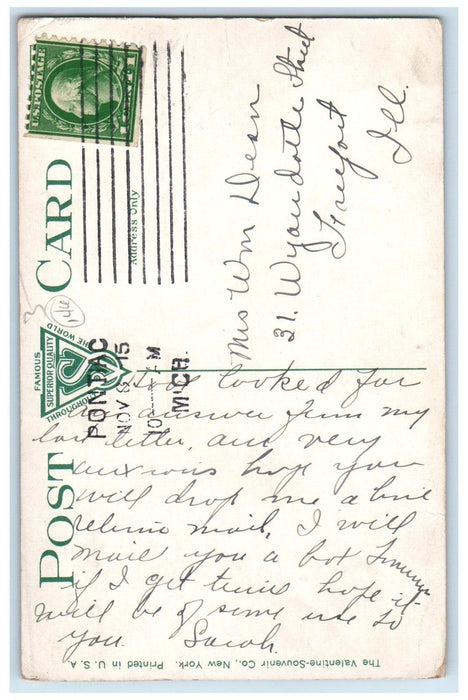 U.S. POSTAGE
1 CENT 1
POST CARD
FAMOUS
SUPERIOR QUALITY
THROUGHOUT THE WORLD
Address Only
PONTIAC
NOV 8 15
MICH.
Mrs Wm Dean
31. Wyandotte Street
Freeport
Ill.
looked for
answer from my
last letter, am very
anxious hope you
will drop me a line
return mail, I will
mail you a box
if I get time hope it
will be of some use to
you. Sarah.
The Valentine-Souvenir Co., New York. Printed in U. S. A